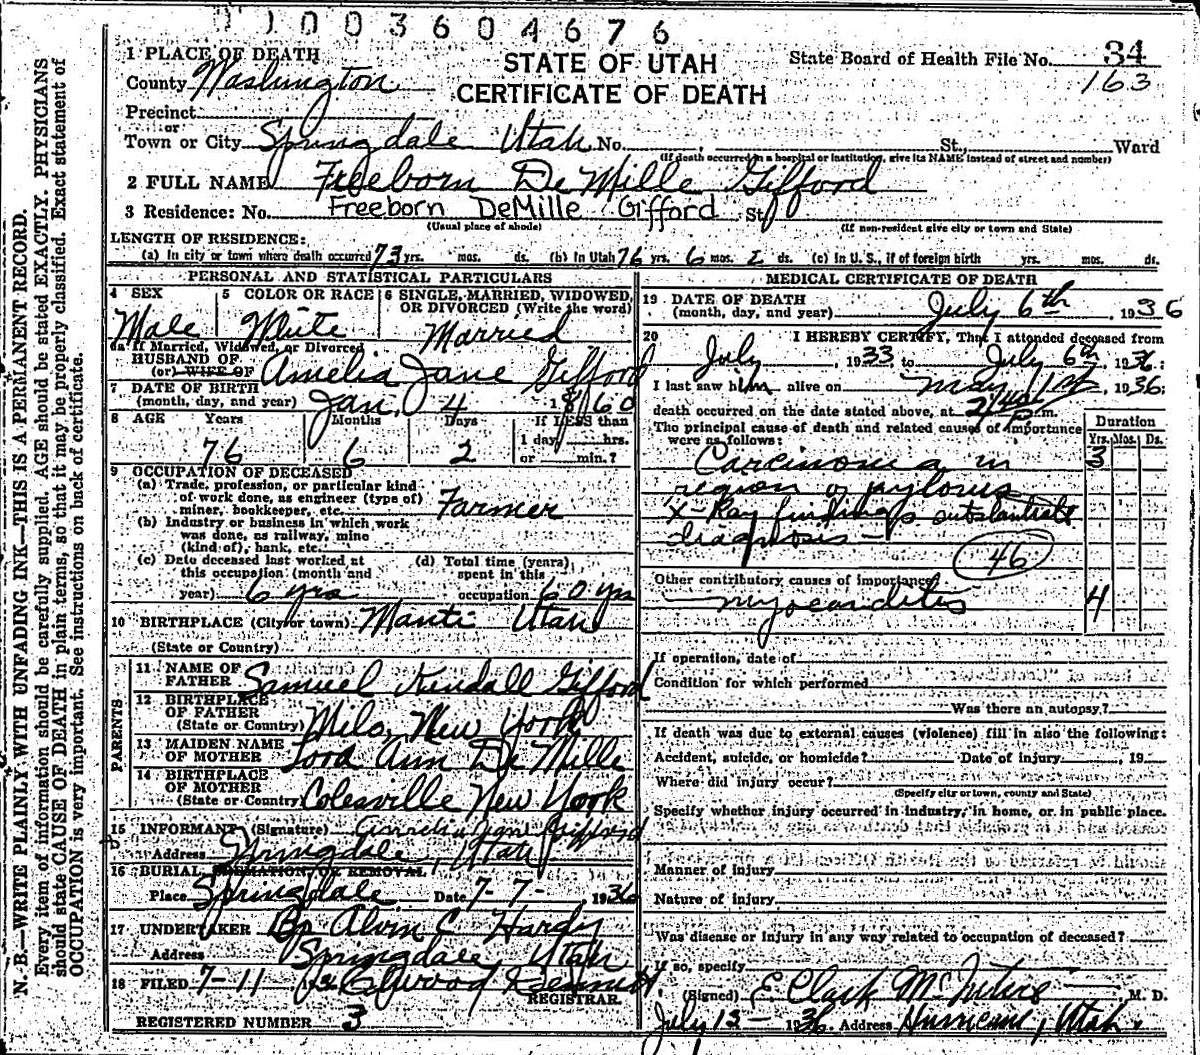 01003604676
1 PLACE OF DEATH
STATE OF UTAH
State Board of Health File No. 34
County Washington
CERTIFICATE OF DEATH
163
Precinct
or
Town or City Springdale Utah No. , St., Ward
(If death occurred in a hospital or institution, give its NAME instead of street and number)
2 FULL NAME Freeborn DeMille Gifford
3 Residence: No. Freeborn DeMille Gifford St.
(Usual place of abode) (If non-resident give city or town and State)
LENGTH OF RESIDENCE:
(a) In city or town where death occurred 73 yrs. mos. ds. (b) In Utah 76 yrs. 6 mos. 2 ds. (c) In U. S., if of foreign birth yrs. mos. ds.
PERSONAL AND STATISTICAL PARTICULARS
4 SEX
Male
5 COLOR OR RACE
White
6 SINGLE, MARRIED, WIDOWED, OR DIVORCED (Write the word)
Married
6a If Married, Widowed, or Divorced
HUSBAND OF
(or) WIFE OF Amelia Jane Gifford
7 DATE OF BIRTH
(month, day, and year) Jan. 4 1860
8 AGE Years Months Days If LESS than
76 6 2 1 day, hrs.
or min.?
9 OCCUPATION OF DECEASED
(a) Trade, profession, or particular kind
of work done, as engineer (type of)
miner, bookkeeper, etc. Farmer
(b) Industry or business in which work
was done, as railway, mine
(kind of), bank, etc.
(c) Date deceased last worked at
this occupation (month and
year) 6 yrs
(d) Total time (years)
spent in this
occupation 60 yrs
10 BIRTHPLACE (City or town) Manti Utah
(State or Country)
PARENTS
11 NAME OF
FATHER Samuel Kendall Gifford
12 BIRTHPLACE
OF FATHER
(State or Country) Milo, New York
13 MAIDEN NAME
OF MOTHER Lora Ann DeMille
14 BIRTHPLACE
OF MOTHER
(State or Country) Colesville New York
15 INFORMANT (Signature) Amelia Jane Gifford
Address Springdale, Utah
16 BURIAL, CREMATION OR REMOVAL
Place Springdale Date 7-7- 1936
17 UNDERTAKER Bp Alvin C Hardy
Address Springdale, Utah
18 FILED 7-11
REGISTRAR.
REGISTERED NUMBER 3
MEDICAL CERTIFICATE OF DEATH
19 DATE OF DEATH
(month, day, and year) July 6th, 1936
20 I HEREBY CERTIFY, That I attended deceased from
July, 1933, to July 6th, 1936:
I last saw him alive on May 1st, 1936;
death occurred on the date stated above, at m.
The principal cause of death and related causes of importance
were as follows:
Duration
Yrs. Mos. Ds.
Carcinoma in 3
region of pylorus
X-Ray findings substantiate
diagnosis -
46
Other contributory causes of importance
myocarditis 4
If operation, date of
Condition for which performed
Was there an autopsy?
If death was due to external causes (violence) fill in also the following:
Accident, suicide, or homicide? Date of injury , 19
Where did injury occur?
(Specify city or town, county and State)
Specify whether injury occurred in industry, in home, or in public place.
Manner of injury
Nature of injury
Was disease or injury in any way related to occupation of deceased?
If so, specify
(Signed) E. Clark McIntire M. D.
July 13 - 1936 Address Hurricane, Utah.
N. B.—WRITE PLAINLY WITH UNFADING INK—THIS IS A PERMANENT RECORD.
Every item of information should be carefully supplied. AGE should be stated EXACTLY. PHYSICIANS
should state CAUSE OF DEATH in plain terms, so that it may be properly classified. Exact statement of
OCCUPATION is very important. See instructions on back of certificate.